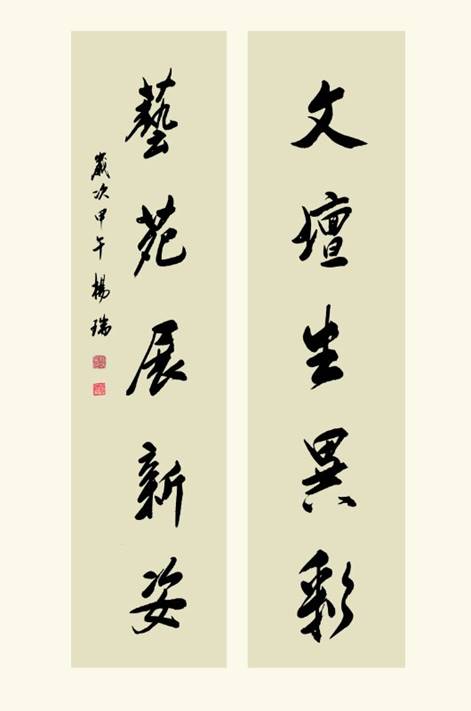 文壇生異彩
藝苑展新姿
歲次甲午楊瑞